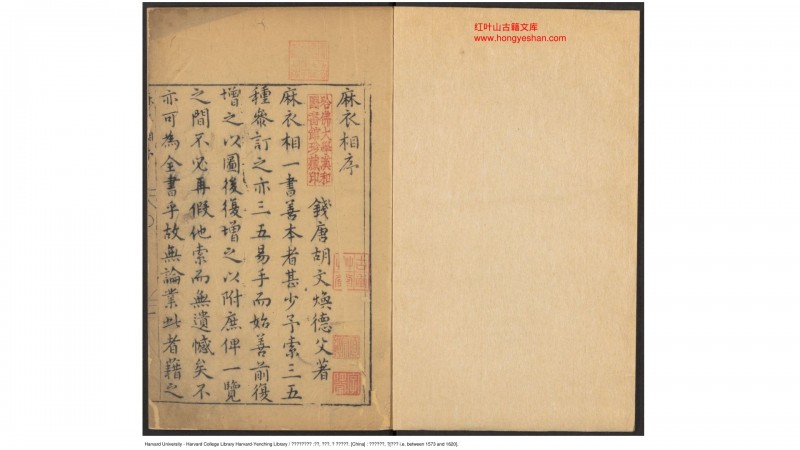 红叶山古籍文库
www.hongyeshan.com
麻衣相序
錢唐胡文煥德父著
麻衣相一書善本者甚少予索三五
種參訂之亦三五易手而始善前復
增之以圖後復增之以附庶俾一覽
之間不必再假他索而無遺憾矣不
亦可為全書乎故無論業此者藉之
哈佛大學漢和
圖書館珍藏印
Harvard University - Harvard College Library Harvard-Yenching Library / ???????? :??, ???, ? ?????. [China] : ??????, ?[??? i.e. between 1573 and 1620].